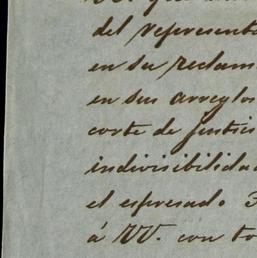 del represent
en su reclam
en sus arreglos
corte de justic
indivisibilida
el espresado
á VV. con to